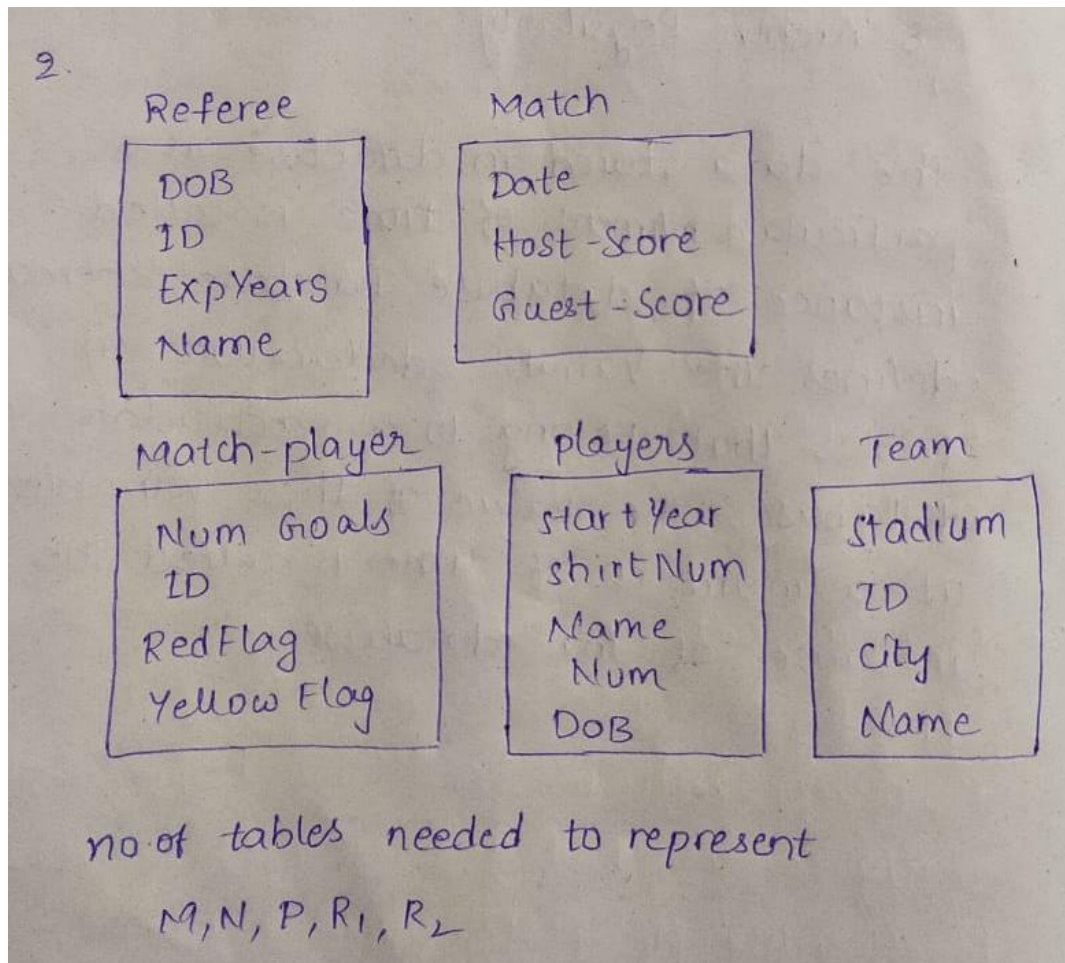 2.
Referee Match
DOB
ID
ExpYears
Name
Date
Host-Score
Guest-Score
Match-player players Team
Num Goals
ID
Red Flag
Yellow Flag
start Year
shirt Num
Name
Num
DOB
stadium
ID
City
Name
no.of tables needed to represent
M, N, P, R1, R2